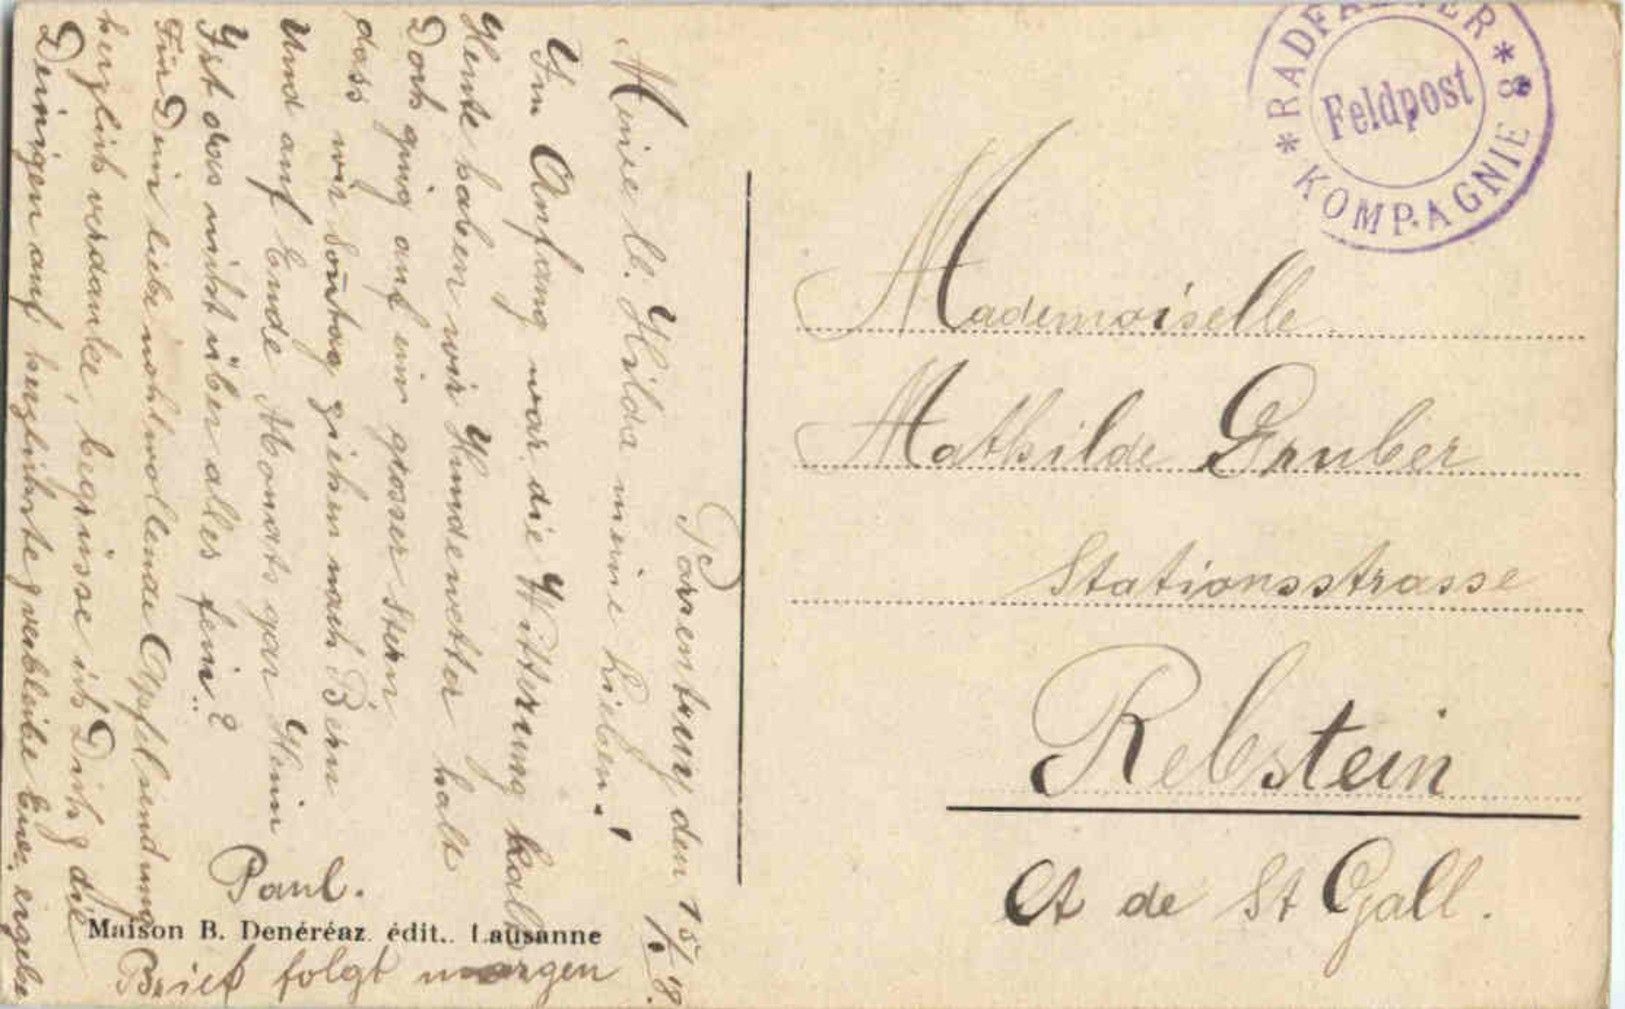 Porrentruy den 15/I. 18.
Meine lb. Hilda meine Lieben!
Im Anfang war die Witterung kalt
Heute haben wir Hundewetter halt
Doch ging auf ein grosser Stern
dass wir Sontag ziehen nach Bern
Und auf Ende Monats gar Heim
Ist das nicht über alles fein?
Für Deine liebe wohlwollende Apfelsendung
herzlich verdanke, begrüsse ich Dich, & die
Deinigen auf herzlichste & verbleibe Euer ergebr
Paul.
Brief folgt morgen
Maison B. Denéréaz. édit.. Lausanne
RADFAHRER
KOMPAGNIE 8
Feldpost
Mademoiselle
Mathilde Gruber
Stationsstrasse
Rebstein
Ct de St Gall.